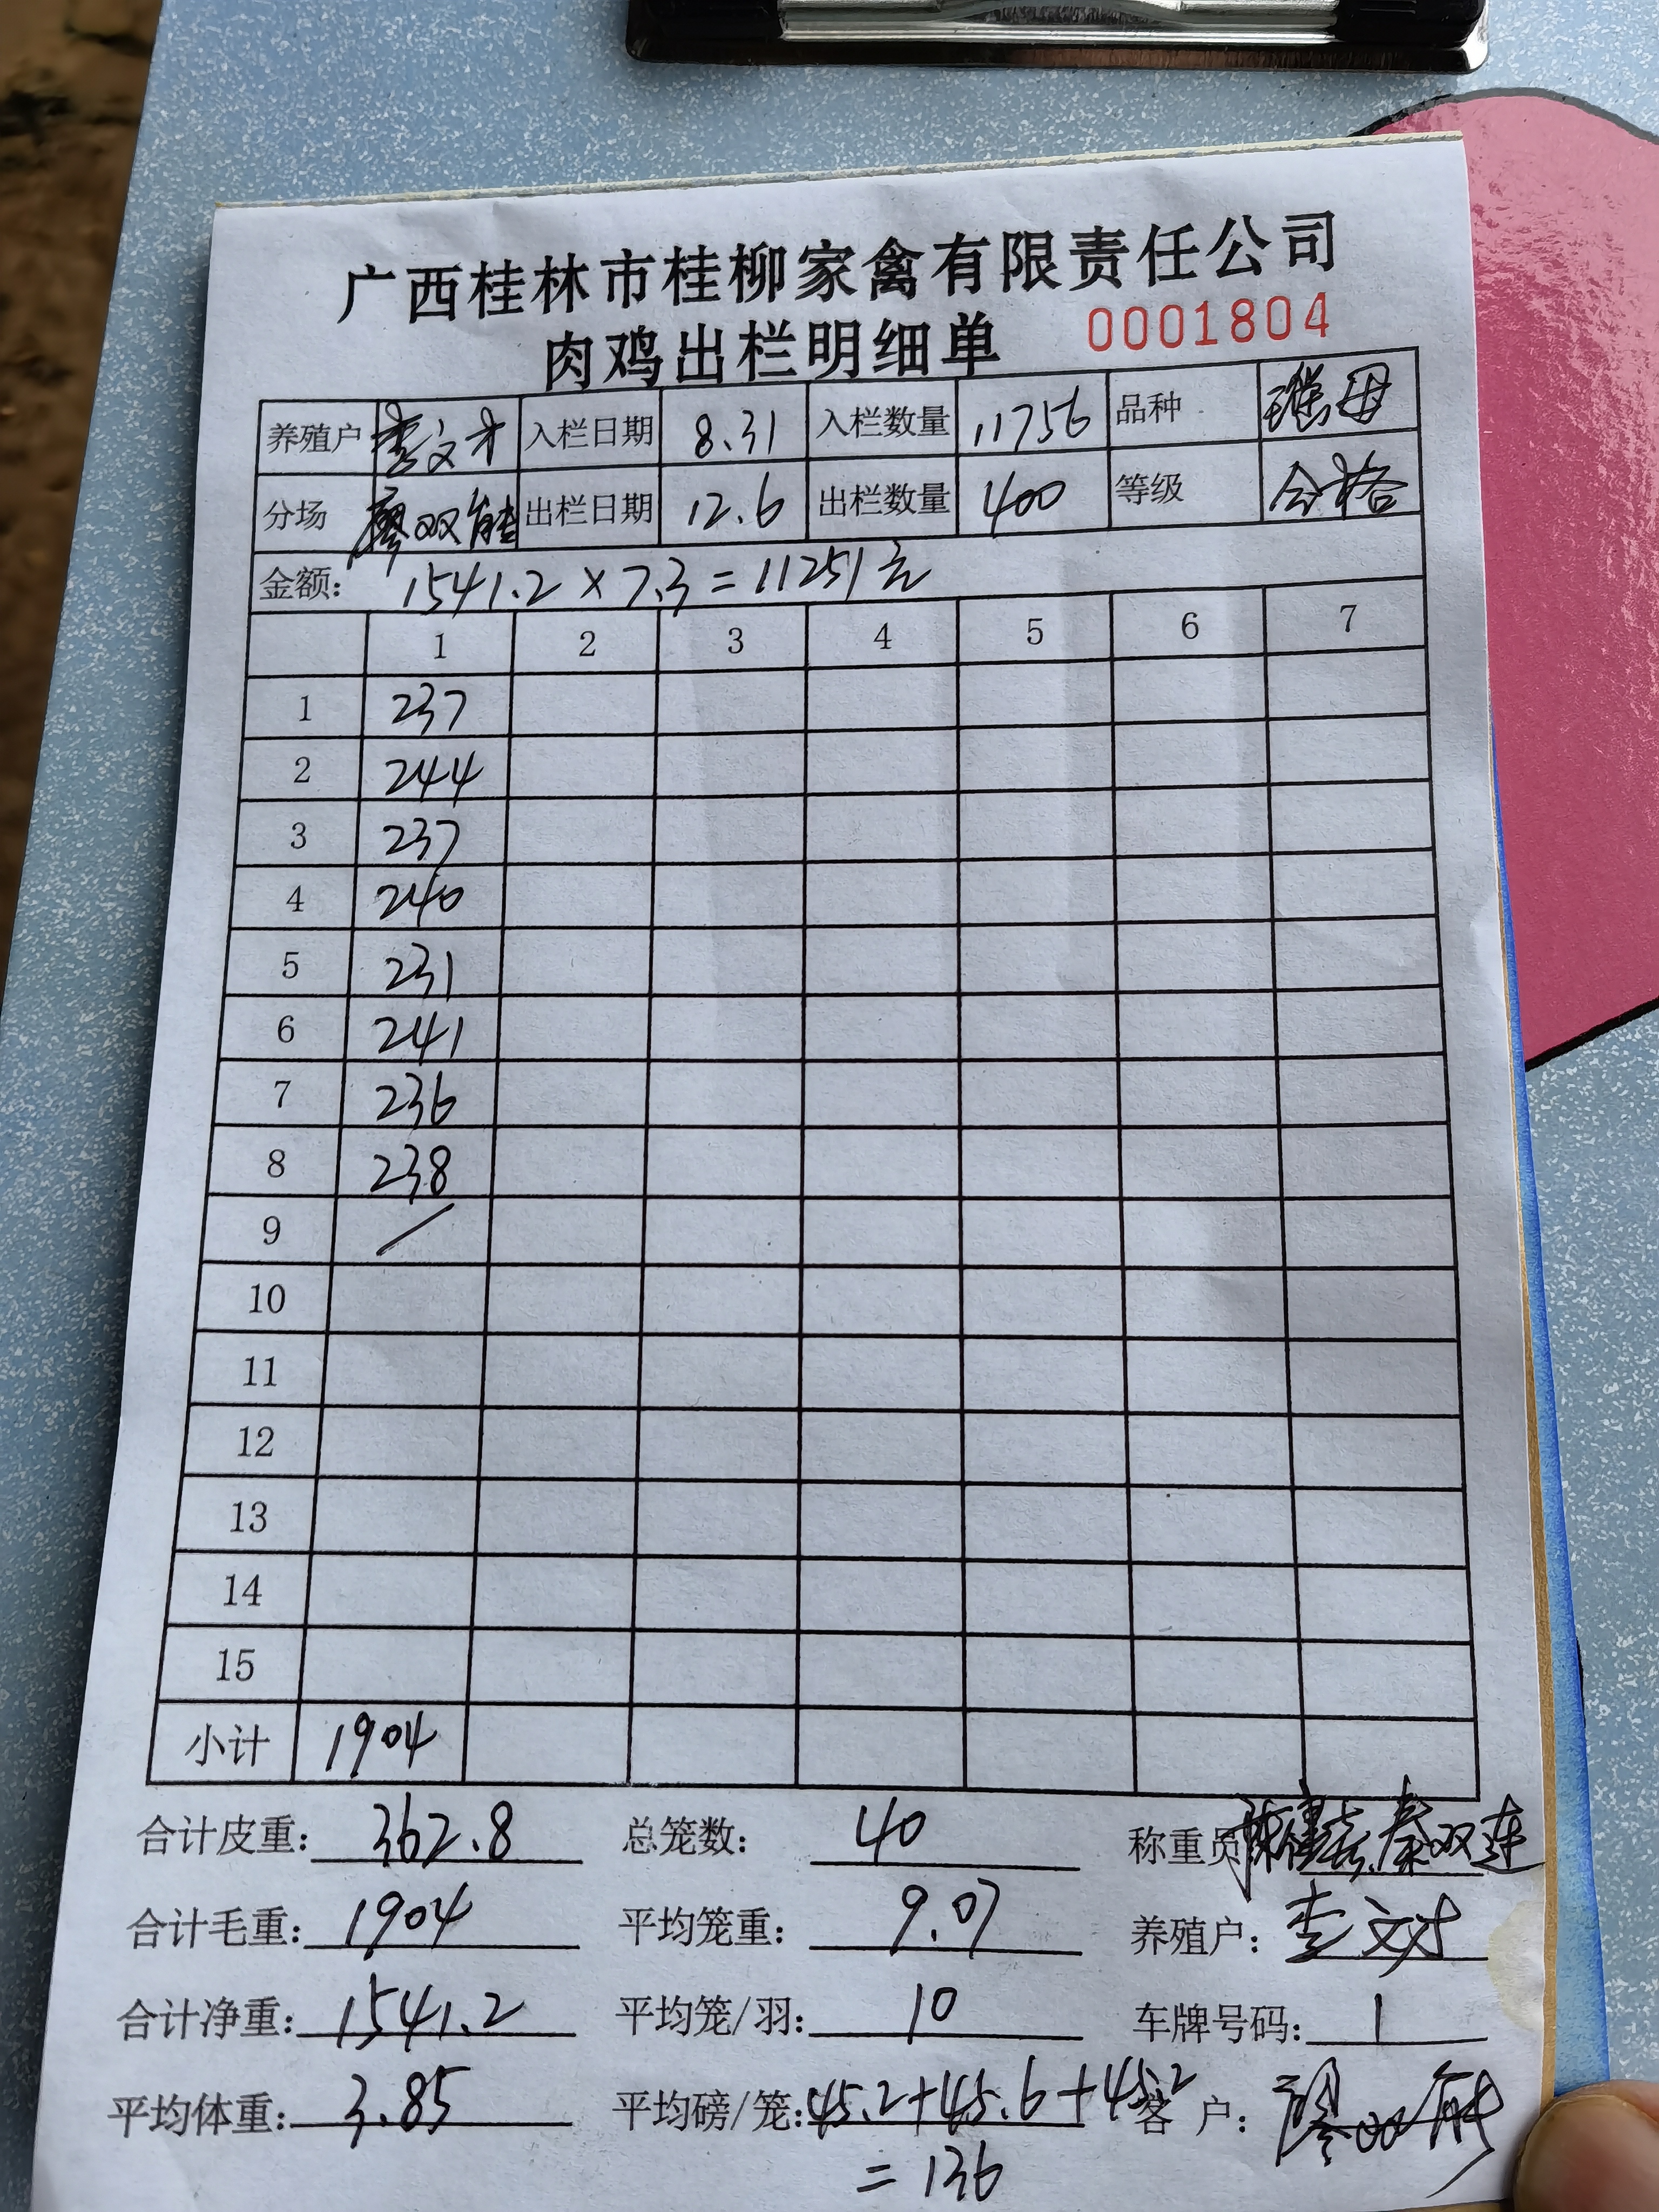 广西桂林市桂柳家禽有限责任公司
肉鸡出栏明细单 0001804
养殖户 李文才 入栏日期 8.31 入栏数量 11756 品种 瑶母
分场 廖双能 出栏日期 12.6 出栏数量 400 等级 合格
金额: 1541.2×7.3=11251元
1 2 3 4 5 6 7
1 237
2 244
3 237
4 240
5 231
6 241
7 236
8 238
9 /
10
11
12
13
14
15
小计 1904
合计皮重: 362.8 总笼数: 40 称重员 秦双连
合计毛重: 1904 平均笼重: 9.07 养殖户: 李文才
合计净重: 1541.2 平均笼/羽: 10 车牌号码: 1
平均体重: 3.85 平均磅/笼: 45.2+45.6+45.2 客户: 廖双能
=136